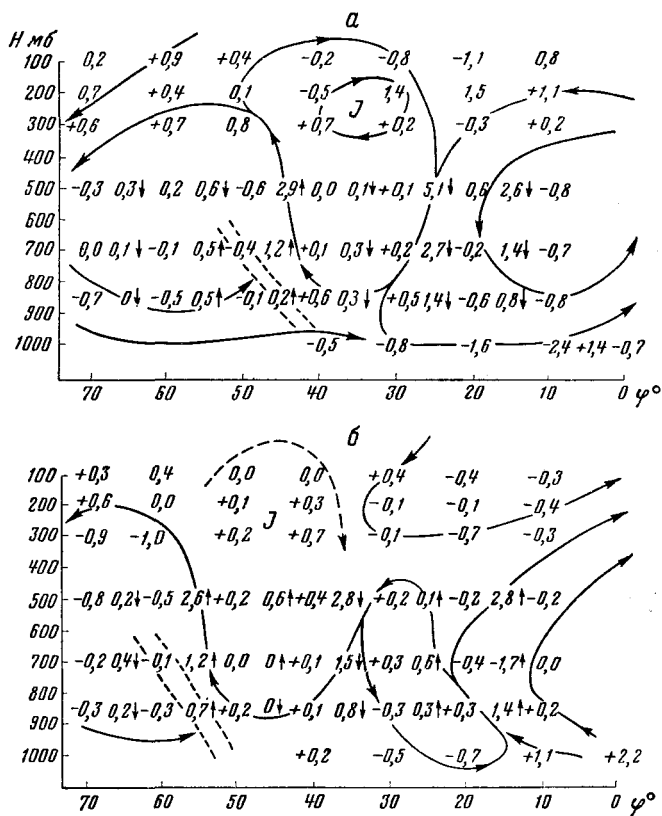 а
Н мб
100 0,2 +0,9 +0,4 -0,2 -0,8 -1,1 0,8
200 0,7 +0,4 0,1 -0,5 1,4 1,5 +1,1
J
300 +0,6 +0,7 0,8 +0,7 +0,2 -0,3 +0,2
400
500 -0,3 0,3↓ 0,2 0,6↓ -0,6 2,9↑ 0,0 0,1↓ +0,1 5,1↓ 0,6 2,6↓ -0,8
600
700 0,0 0,1↓ -0,1 0,5↑ -0,4 1,2↑ +0,1 0,3↓ +0,2 2,7↓ -0,2 1,4↓ -0,7
800
-0,7 0↓ -0,5 0,5↑ -0,1 0,2↑ +0,6 0,3↓ +0,5 1,4↓ -0,6 0,8↓ -0,8
900
1000 -0,5 -0,8 -1,6 -2,4 +1,4 -0,7
70 60 50 40 30 20 10 0 φ°
б
100 +0,3 0,4 0,0 0,0 +0,4 -0,4 -0,3
200 +0,6 0,0 +0,1 +0,3 -0,1 -0,1 -0,4
J
300 -0,9 -1,0 +0,2 +0,7 -0,1 -0,7 -0,3
400
500 -0,8 0,2↓ -0,5 2,6↑ +0,2 0,6↑ +0,4 2,8↓ +0,2 0,1↑ -0,2 2,8↑ -0,2
600
700 -0,2 0,4↓ -0,1 1,2↑ 0,0 0↑ +0,1 1,5↓ +0,3 0,6↑ -0,4 -1,7↑ 0,0
800
-0,3 0,2↓ -0,3 0,7↑ +0,2 0↓ +0,1 0,8↓ -0,3 0,3↑ +0,3 1,4↑ +0,2
900
1000 +0,2 -0,5 -0,7 +1,1 +2,2
70 60 50 40 30 20 10 0 φ°